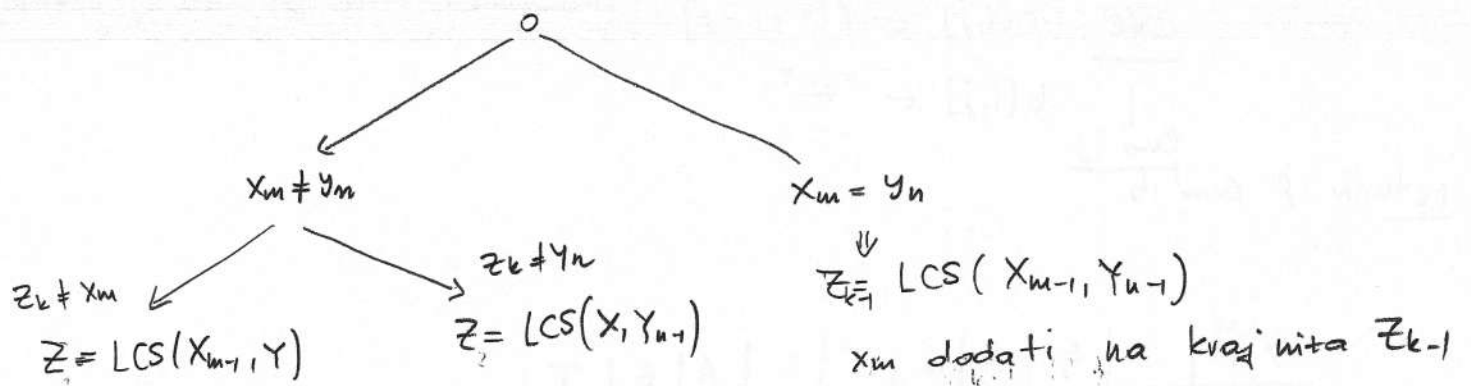 0
x_m ≠ y_n
x_m = y_n
z_k ≠ x_m
Z = LCS(X_{m-1}, Y)
z_k ≠ y_n
Z = LCS(X, Y_{n-1})
⇓
Z_{k-1} = LCS(X_{m-1}, Y_{n-1})
x_m dodati na kraj niza Z_{k-1}